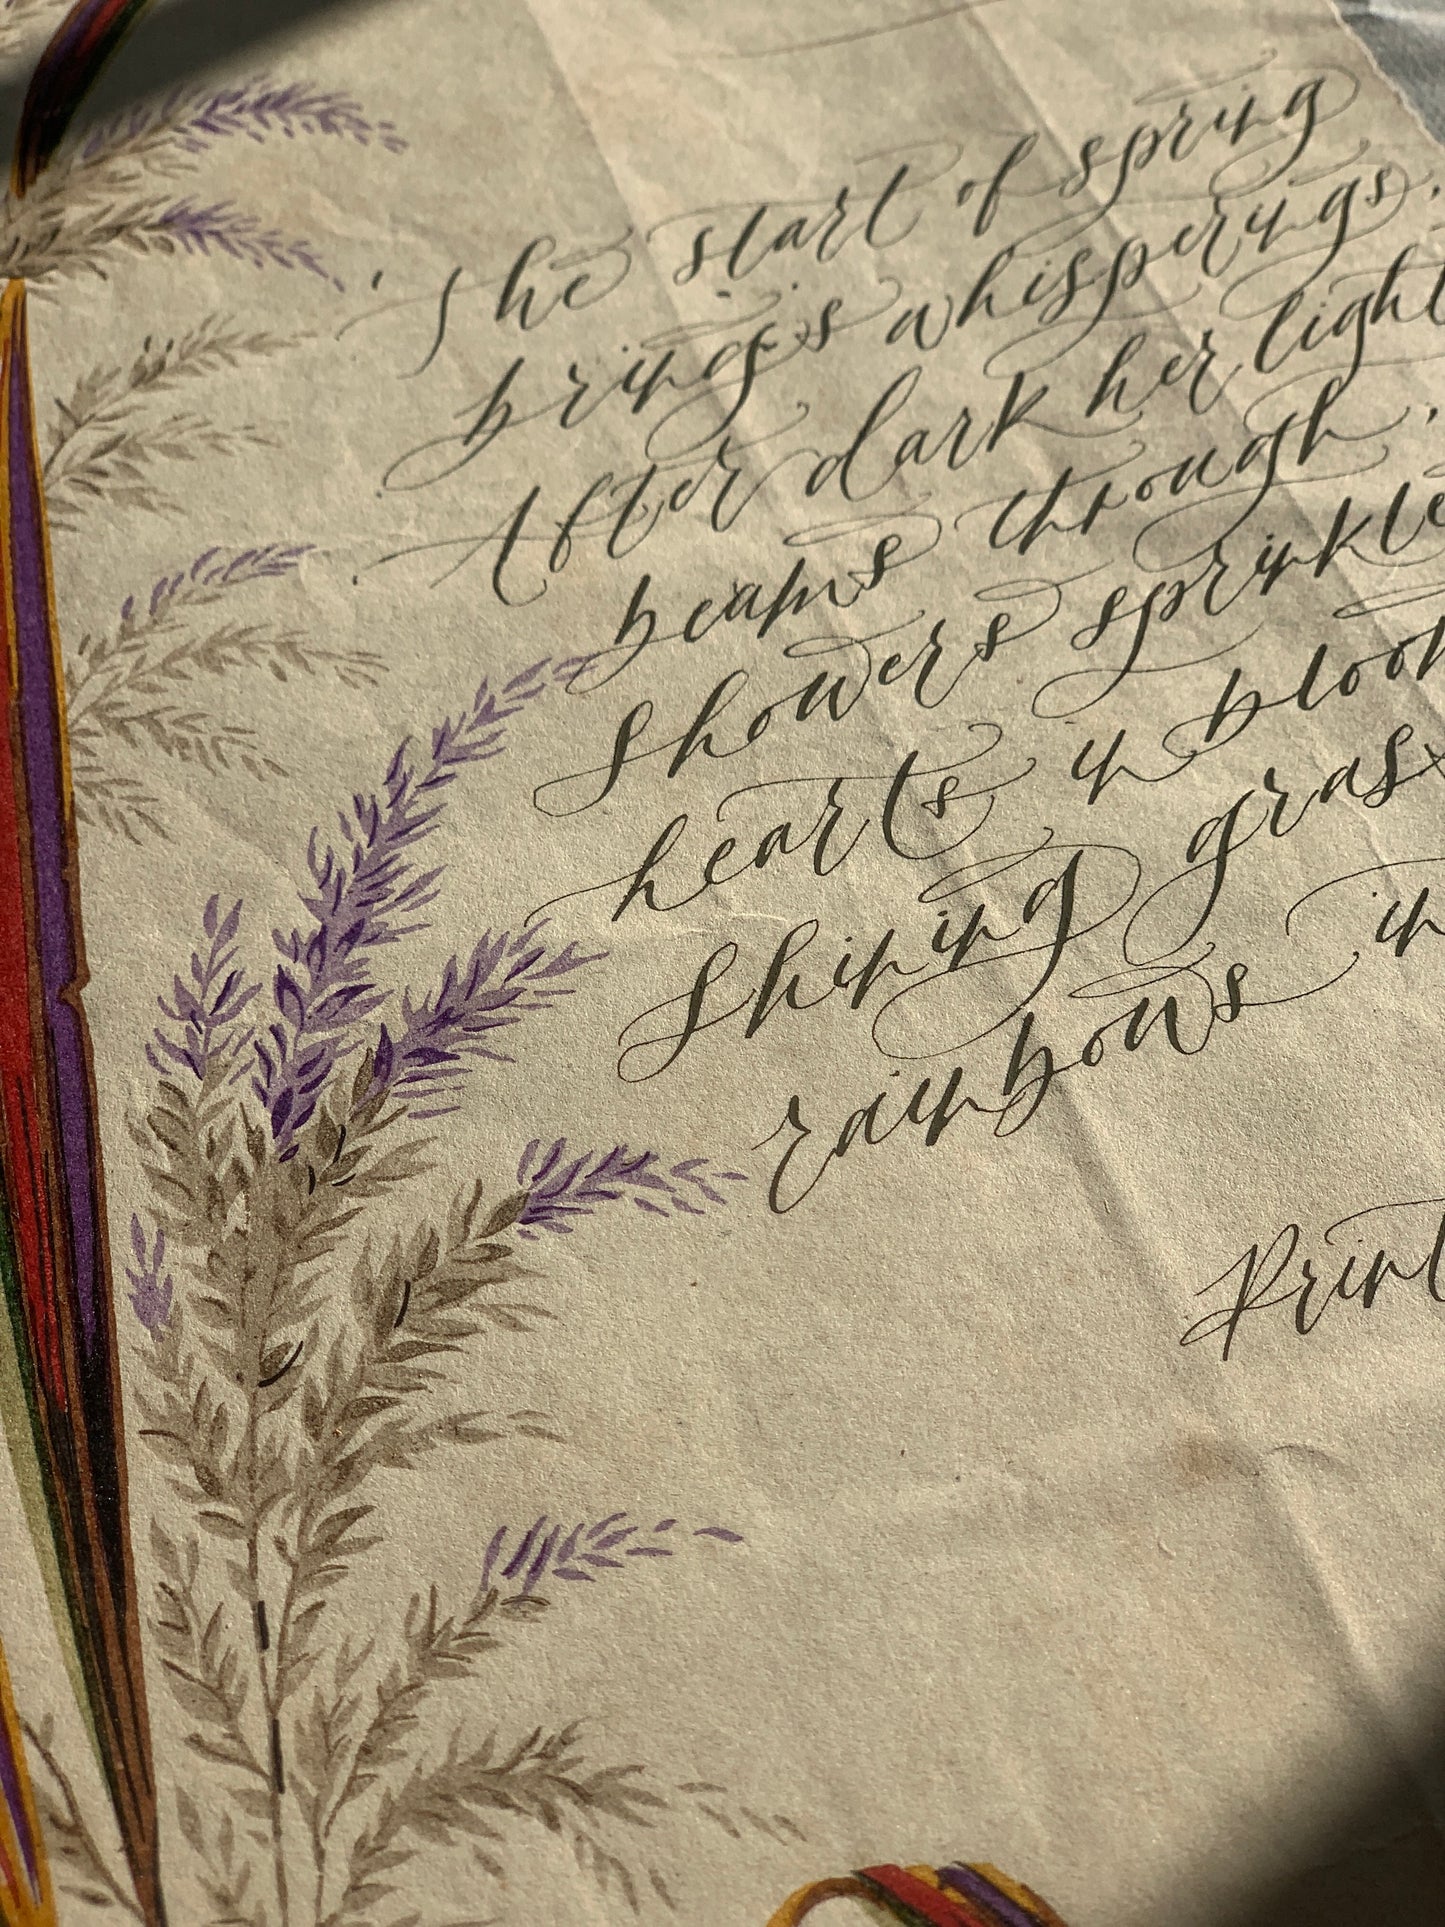 The start of spring
brings whisperings.
After dark her light
beams through.
Showers sprinkle
hearts in bloom
Shining grass
rainbows in